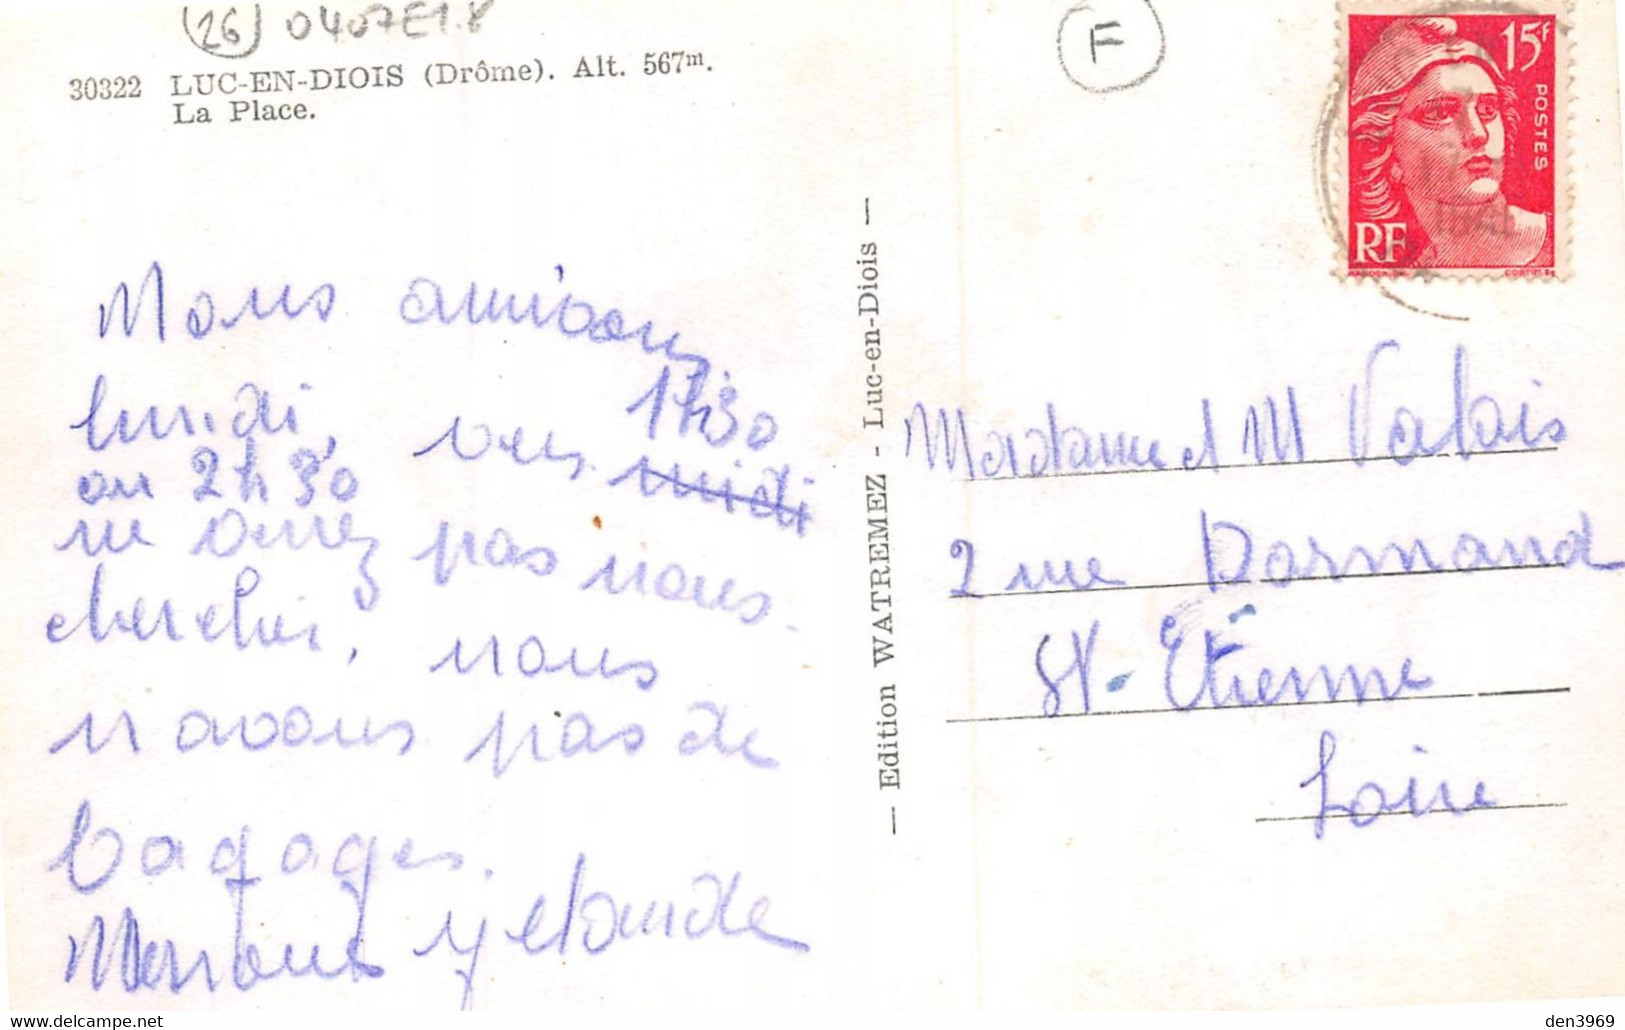 (26) 0407E1.8
F
30322 LUC-EN-DIOIS (Drôme). Alt. 567m.
La Place.
15F
POSTES
RF
Nous arrivons
lundi vers 1h30
ou 2h30 midi
ne venez pas nous
chercher, nous
n avons pas de
bagages.
— Edition WATREMEZ - Luc-en-Diois —
Madame et M Valois
2 rue Dormand
St-Etienne
Loire
den3969